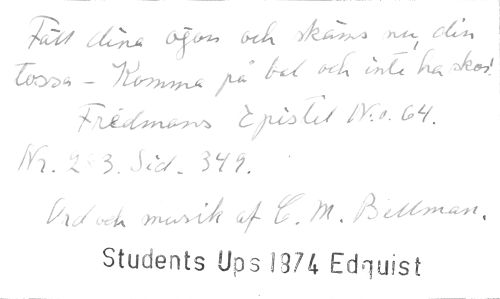 Fäll dina ögon och skäms nu, din
tossa – Komma på bal och inte ha skor.
Fredmans Epistel No. 64.
Nr. 2 3. Sid. 349.
Ord och musik af C. M. Bellman.
Students Ups 1874 Edquist